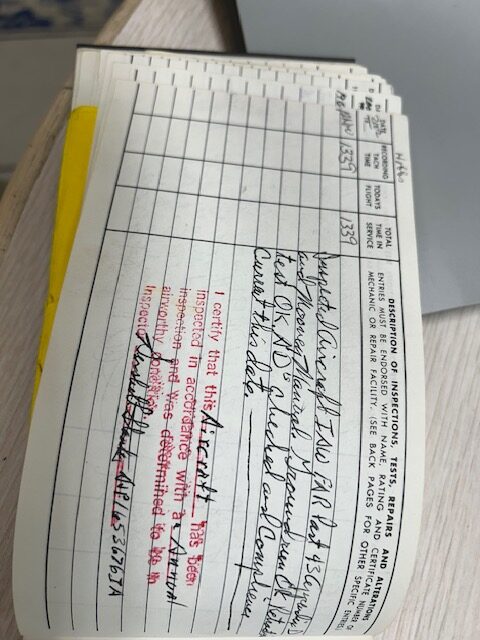 DATE
RECORDING TACH TIME
TODAYS FLIGHT
TOTAL TIME IN SERVICE
DESCRIPTION OF INSPECTIONS, TESTS, REPAIRS AND ALTERATIONS
ENTRIES MUST BE ENDORSED WITH NAME, RATING AND CERTIFICATE NUMBER OF
MECHANIC OR REPAIR FACILITY. (SEE BACK PAGES FOR OTHER SPECIFIC ENTRIES
1339
1339
Inspected Aircraft IAW FAR Part 43 Appendix D
and Mooney Manual. Ground run OK
test OK AD's checked and Compliance
Current this date
I certify that this Aircraft has been
inspected in accordance with a Annual
inspection and was determined to be in
airworthy condition
Inspector